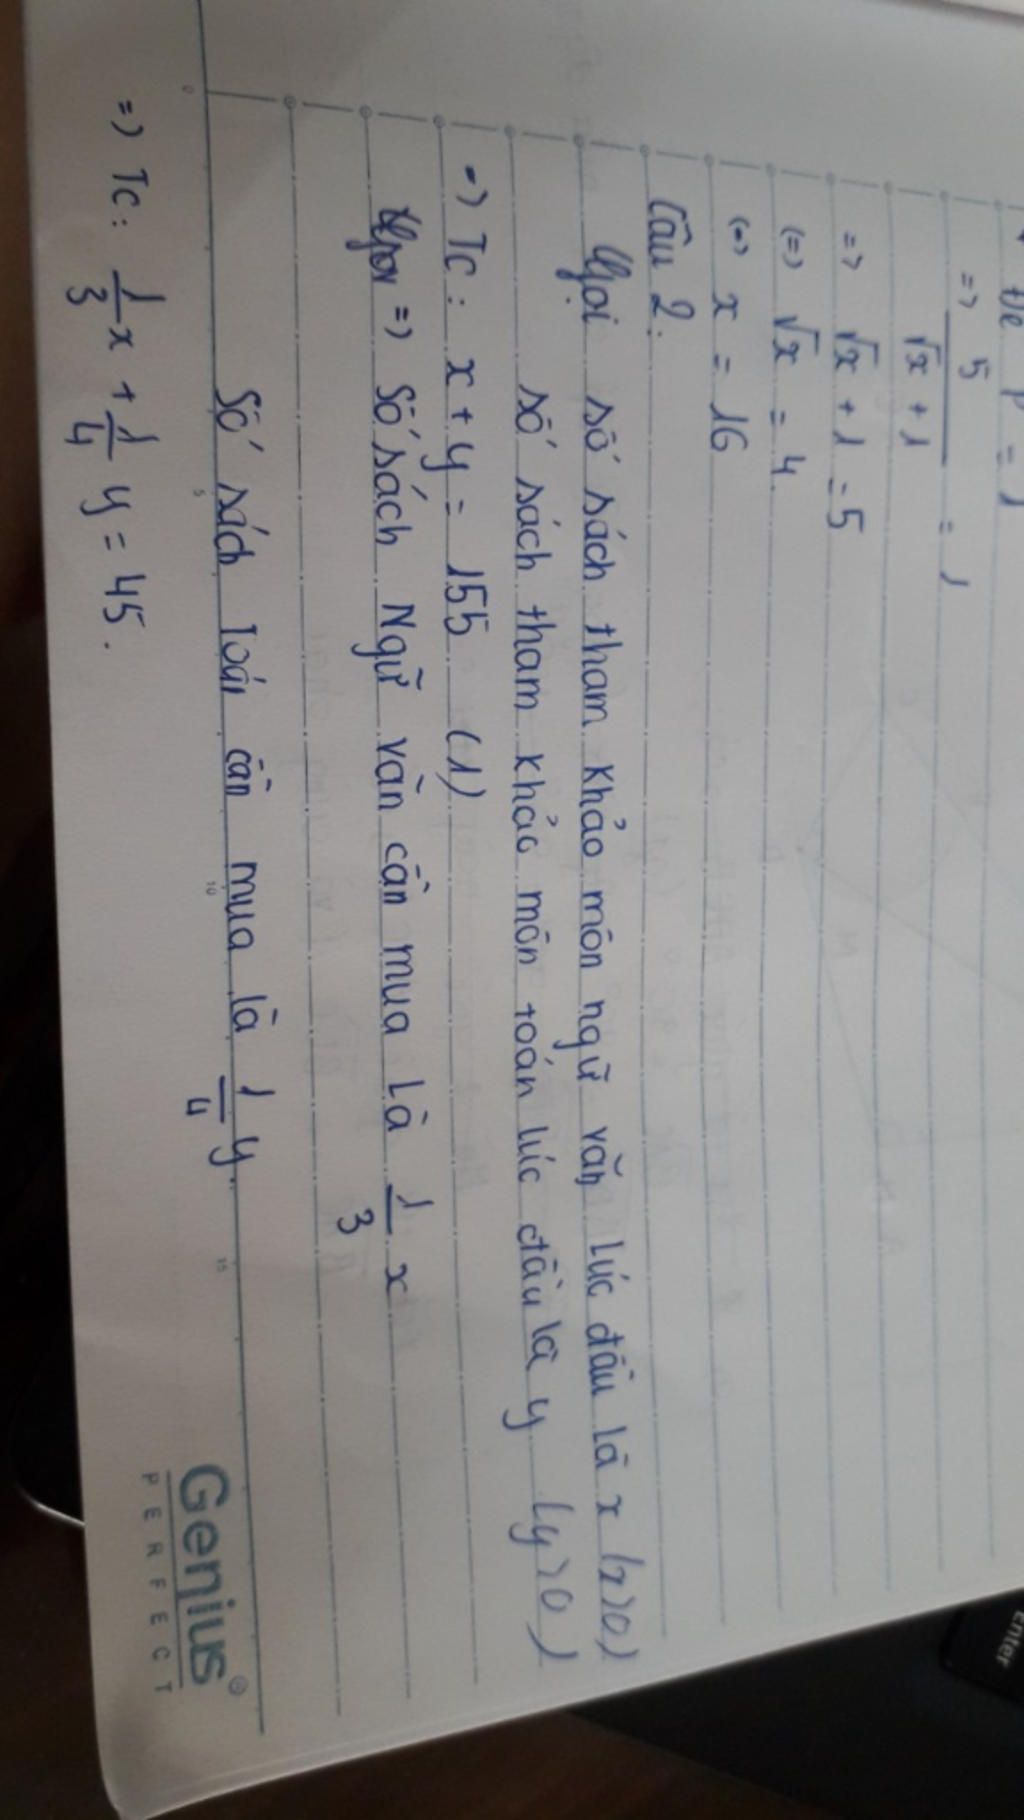 Để P = 1
=> 5 / √x + 1 = 1
=> √x + 1 = 5
(=) √x = 4
(=) x = 16
Câu 2:
Gọi số sách tham khảo môn ngữ văn lúc đầu là x (x>0)
số sách tham khảo môn toán lúc đầu là y (y>0)
=> Tc: x + y = 155 (1)
=> Số sách Ngữ văn cần mua là 1/3 x
Số sách Toán cần mua là 1/4 y.
=> Tc: 1/3 x + 1/4 y = 45.
Genius®
PERFECT
0
5
10
15
Enter